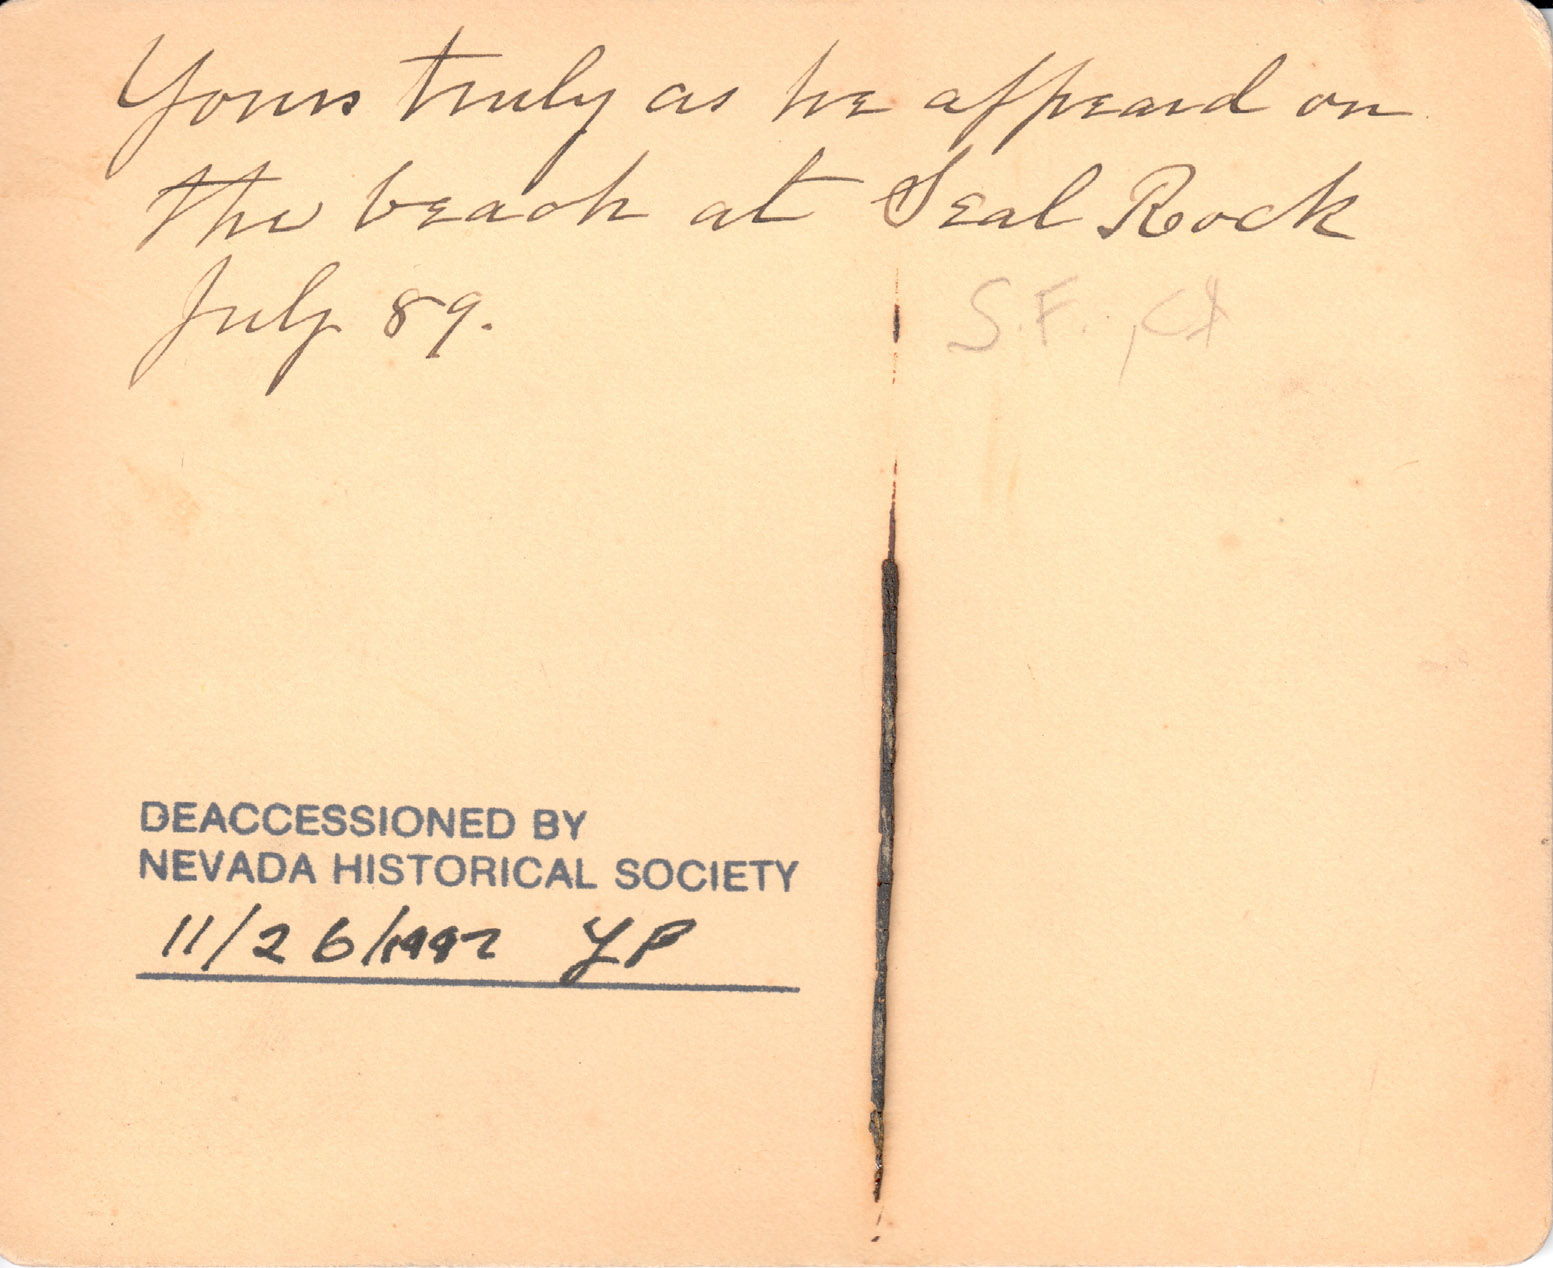 Yours truly as he appeard on
the beach at Seal Rock
July 89.
S.F.
DEACCESSIONED BY
NEVADA HISTORICAL SOCIETY
11/26/1997 YP